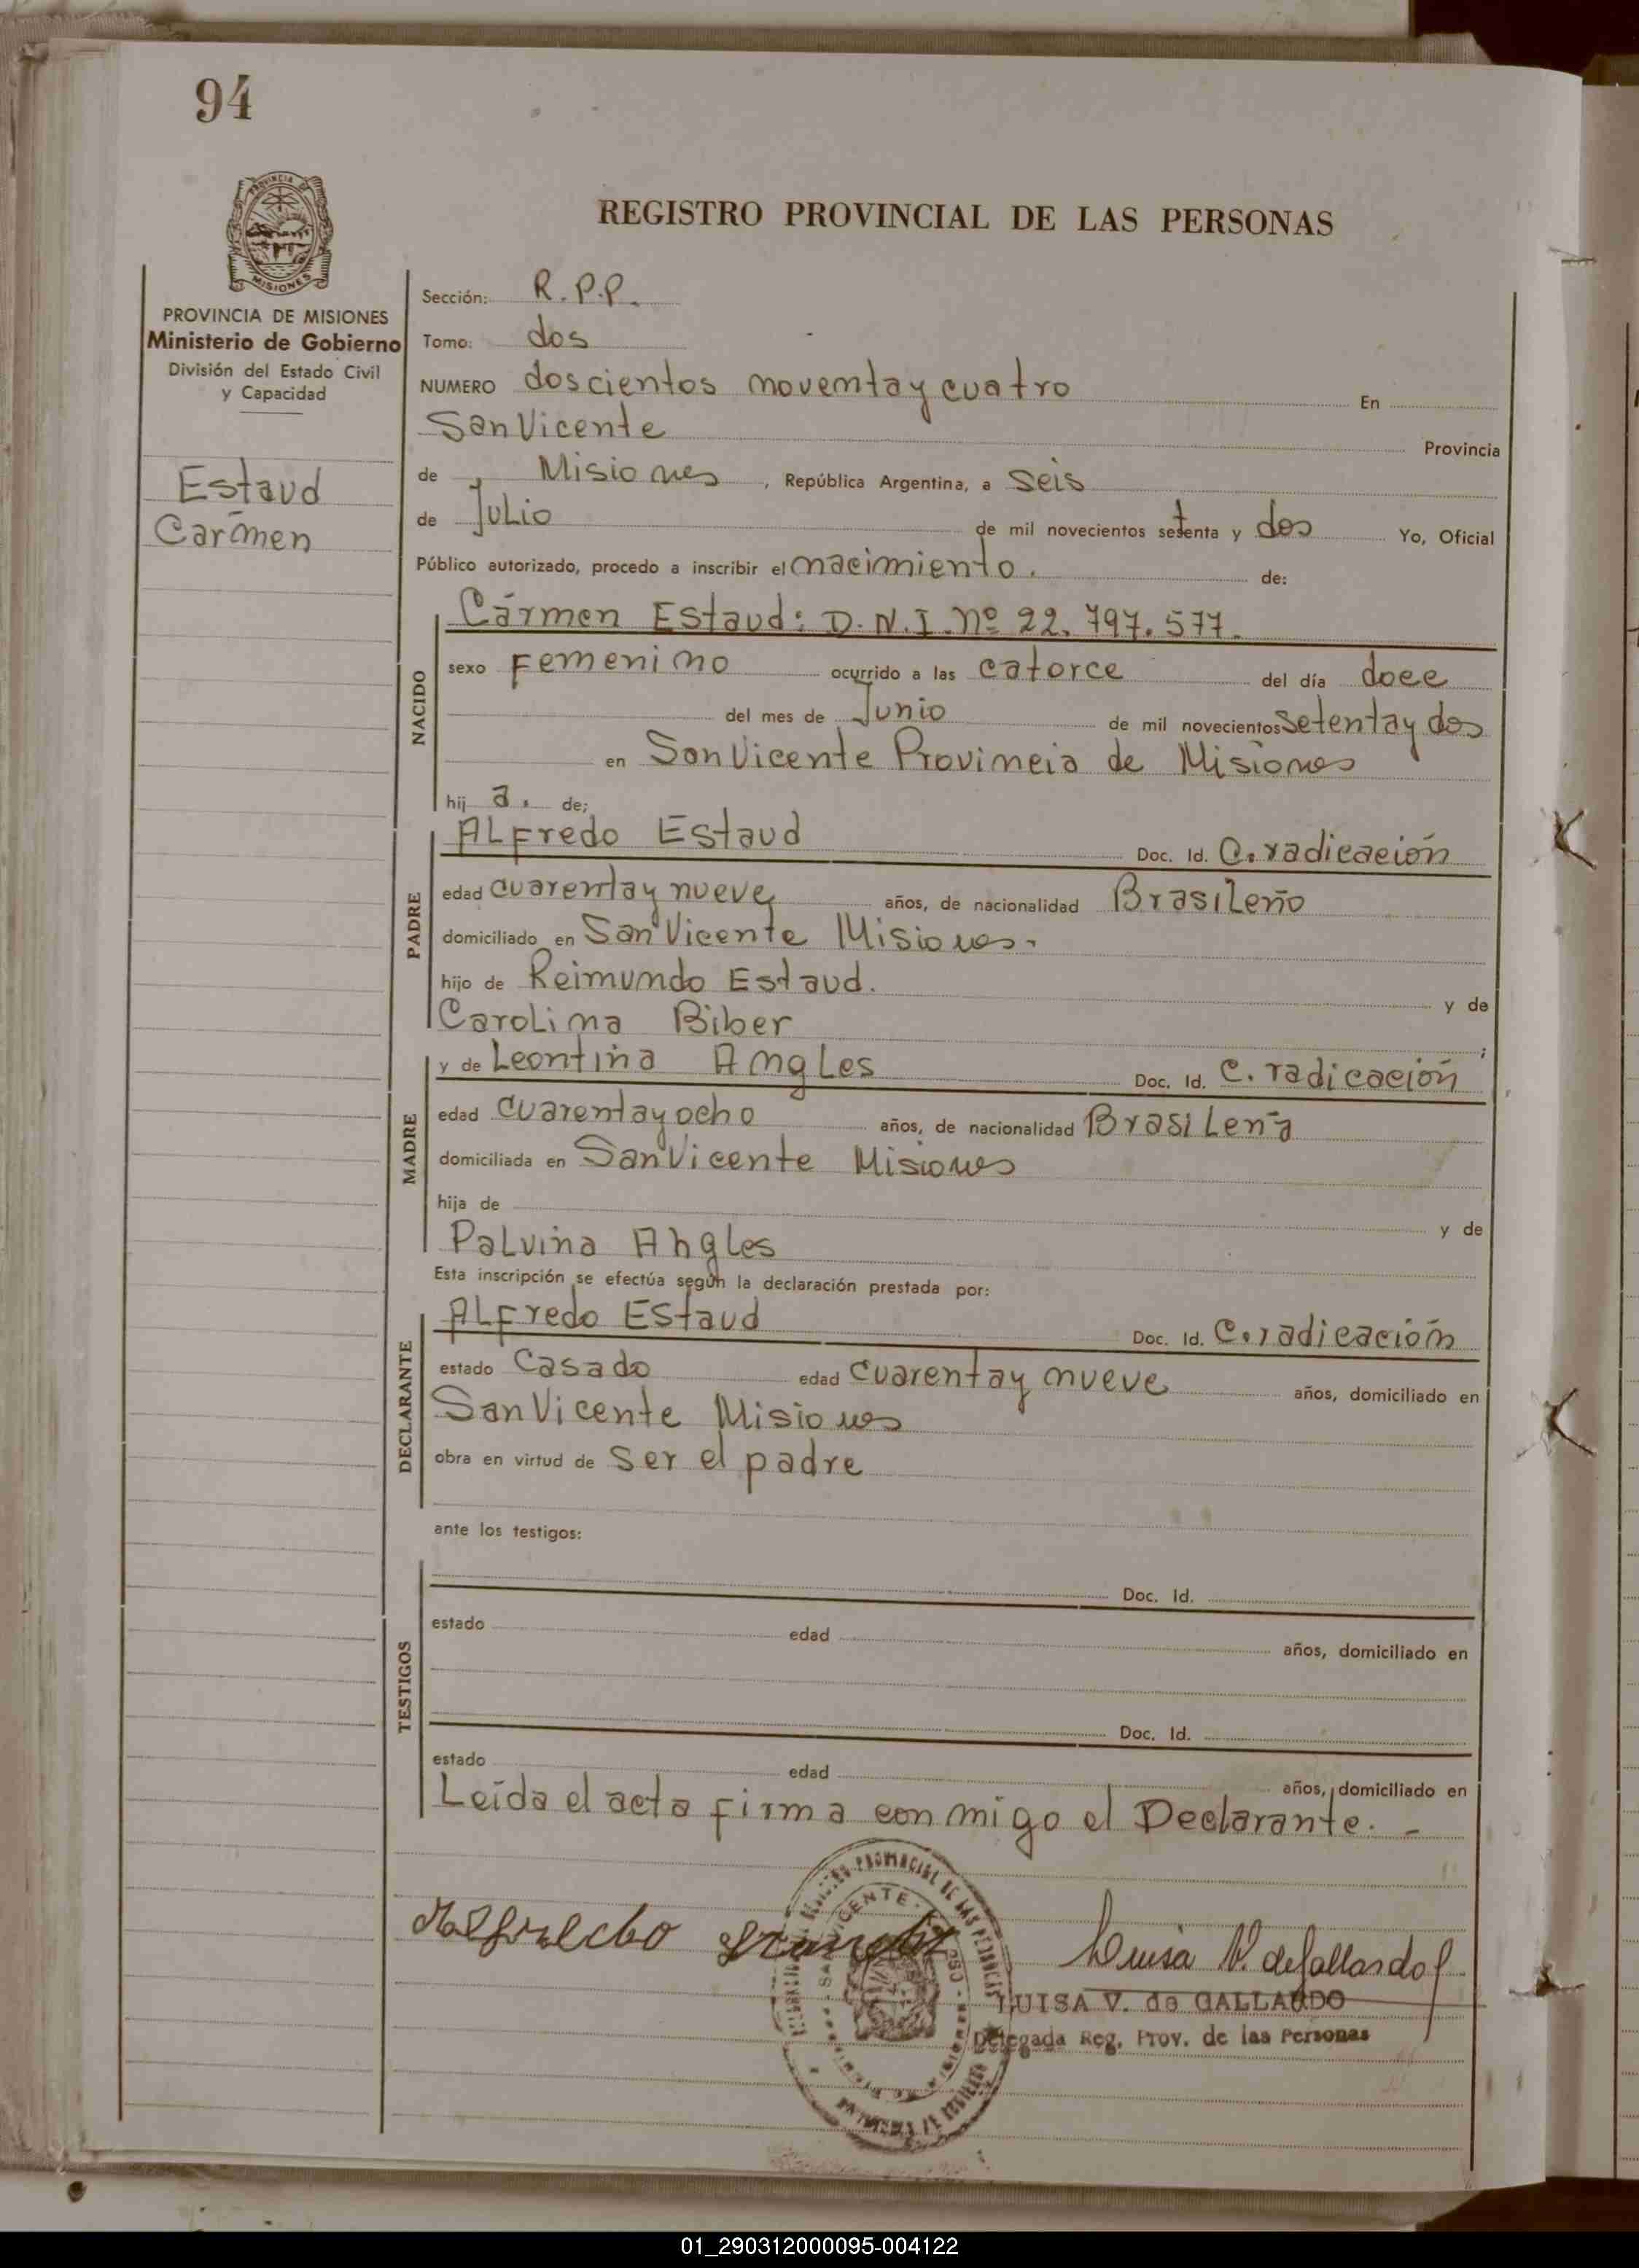 94
PROVINCIA DE
MISIONES
REGISTRO PROVINCIAL DE LAS PERSONAS
PROVINCIA DE MISIONES
Ministerio de Gobierno
División del Estado Civil
y Capacidad
Estaud
Carmen
Sección: R.P.P.
Tomo: dos
NUMERO doscientos noventa y cuatro En
San Vicente Provincia
de Misiones, República Argentina, a seis
de Julio de mil novecientos setenta y dos Yo, Oficial
Público autorizado, procedo a inscribir el nacimiento. de:
NACIDO
Cármen Estaud: D.N.I. Nº 22.797.577.
sexo Femenino ocurrido a las catorce del día doce
del mes de Junio de mil novecientos setenta y dos
en San Vicente Provincia de Misiones
hij a. de;
PADRE
ALFredo Estaud Doc. Id. C. radicación
edad cuarenta y nueve años, de nacionalidad Brasileño
domiciliado en San Vicente Misiones.
hijo de Reimundo Estaud. y de
Carolina Biber;
MADRE
y de Leontina Angles Doc. Id. C. radicación
edad cuarenta y ocho años, de nacionalidad Brasileña
domiciliada en San Vicente Misiones
hija de y de
Palvina Angles
Esta inscripción se efectúa según la declaración prestada por:
DECLARANTE
ALFredo Estaud Doc. Id. C. radicación
estado Casado edad cuarenta y nueve años, domiciliado en
San Vicente Misiones
obra en virtud de ser el padre
ante los testigos:
TESTIGOS
Doc. Id.
estado edad años, domiciliado en
Doc. Id.
estado edad años, domiciliado en
Leída el acta firma conmigo el Declarante.-
Luisa V. de Gallardo
LUISA V. de GALLARDO
Delegada Reg. Prov. de las Personas
01_290312000095-004122